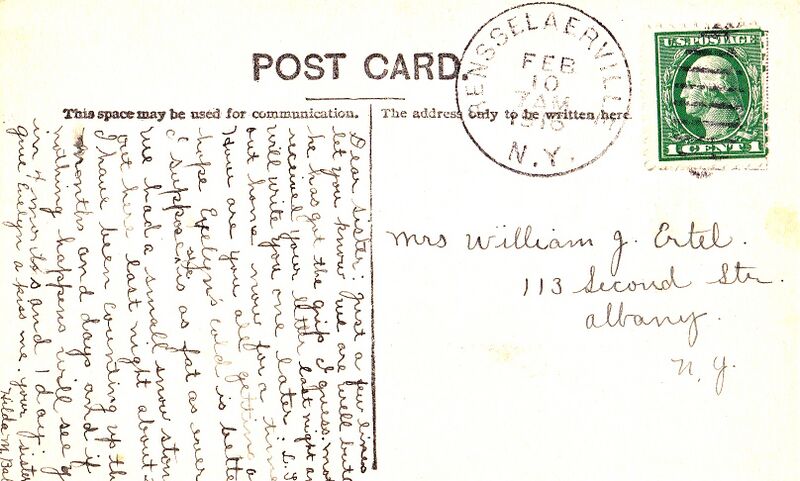 POST CARD.
This space may be used for communication.
The address only to be written here.
RENSSELAERVILLE
FEB
10
7 AM
1916
N.Y.
U.S. POSTAGE
1 CENT 1
Mrs William J. Ertel.
113 Second Str.
Albany.
N.Y.
Dear sister: just a few lines
let you know we are well but
he has got the grip I guess.
received your letter last night an
will write you one later.
out home now for a time
How are you all getting
hope Evelyn's cold is bette
I suppose she is as fat as ever
we had a small snow stor
out here last night about
I have been counting up th
months and days and if
nothing happens will see y
in 4 months and 1 day.
give Evelyn a kiss me. your sister
Hilda M. Bal